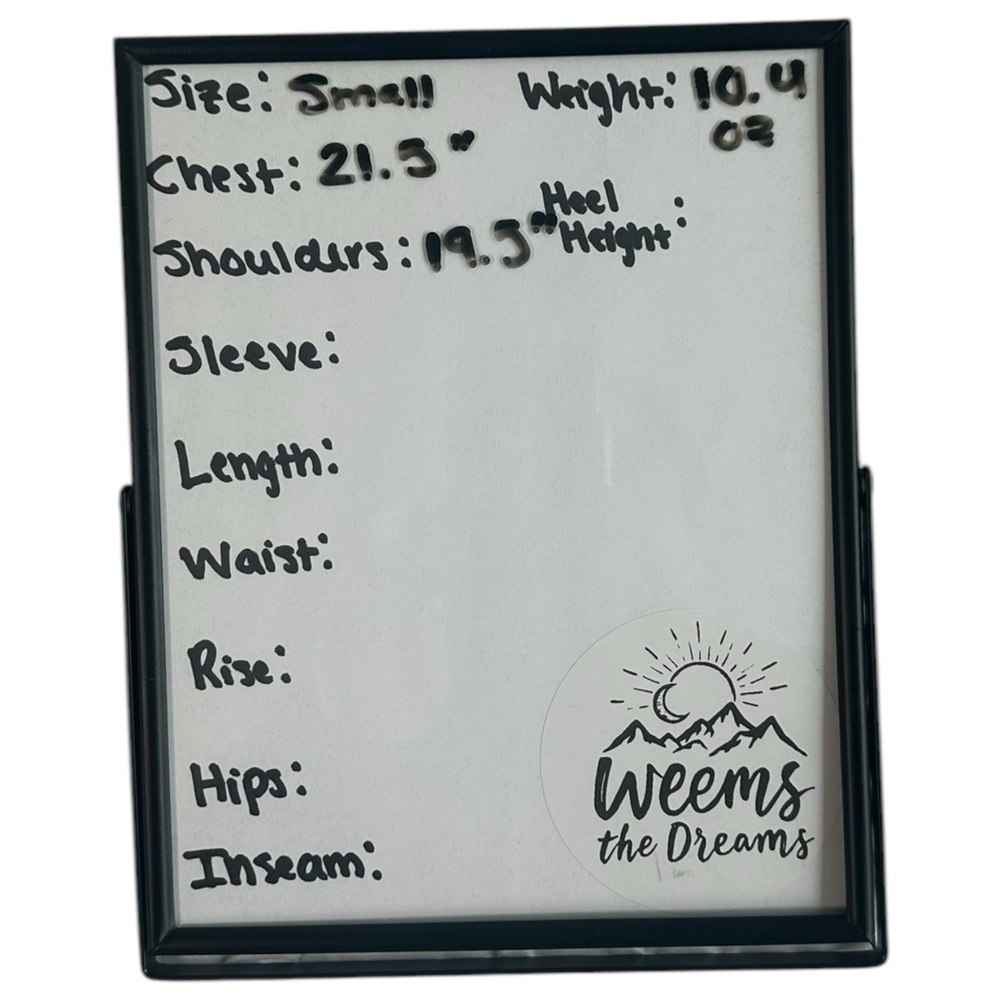 Size: Small
Weight: 10.4
oz
Chest: 21.5"
Shoulders: 19.5"
Heel
Height:
Sleeve:
Length:
Waist:
Rise:
Hips:
Inseam:
Weems
the Dreams